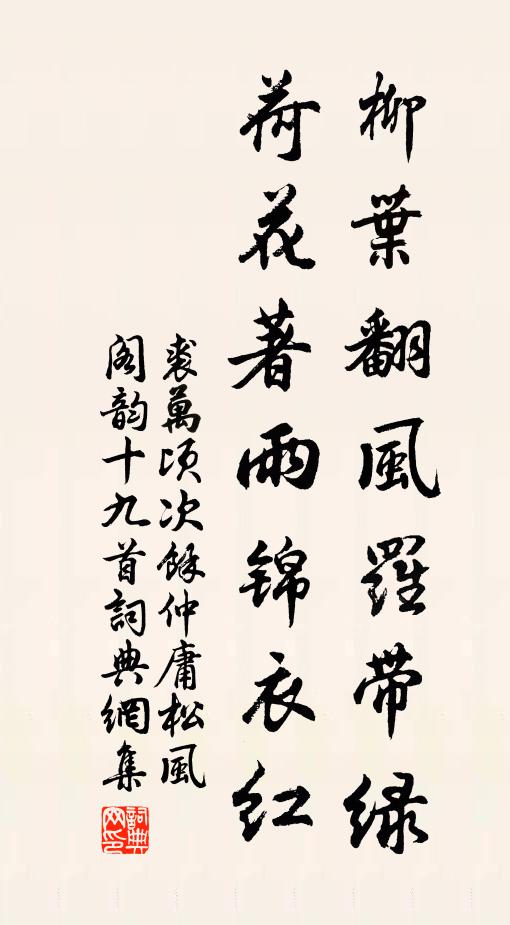 柳葉翻風羅帶緑
荷花著雨錦衣紅
裘萬頃次餘仲庸松風
閣韵十九首詞典網集
詞典网印